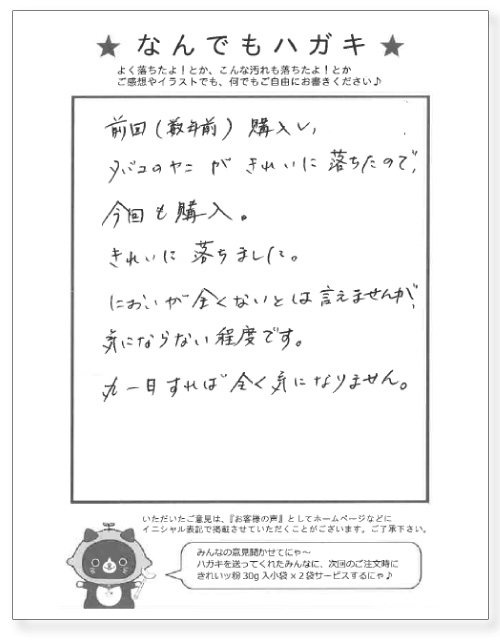 ★ なんでもハガキ ★
よく落ちたよ！とか、こんな汚れも落ちたよ！とか
ご感想やイラストでも、何でもご自由にお書きください♪
前回（数年前）購入し、
タバコのヤニ が きれいに 落ちたので、
今回も購入。
きれいに 落ちました。
においが全くないとは言えませんが、
気にならない程度です。
丸一日すれば 全く気になりません。
いただいたご意見は、『お客様の声』としてホームページなどに
イニシャル表記で掲載させていただくことがございます。ご了承下さい。
みんなの意見聞かせてにゃ～
ハガキを送ってくれたみんなに、次回のご注文時に
きれいッ粉 30g 入小袋 × 2 袋サービスするにゃ♪